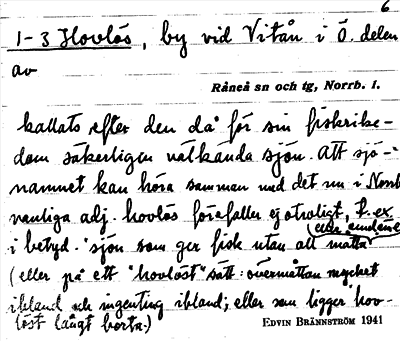 6
1-3 Hovlös, by vid Vitån i Ö. delen
av
Råneå sn och tg, Norrb. l.
kallats efter den då för sin fiskrike-
dom säkerligen välkända sjön. Att sjö-
namnet kan höra samman med det nu i Norrb
vanliga adj. hovlös förefaller ej otroligt, t. ex.
i betyd. "sjön som ger fisk utan all måtta"
(eller på ett "hovlöst" sätt: övermåttan mycket
ibland och ingenting ibland; eller som ligger hov-
löst långt borta.)
EDVIN BRÄNNSTRÖM 1941